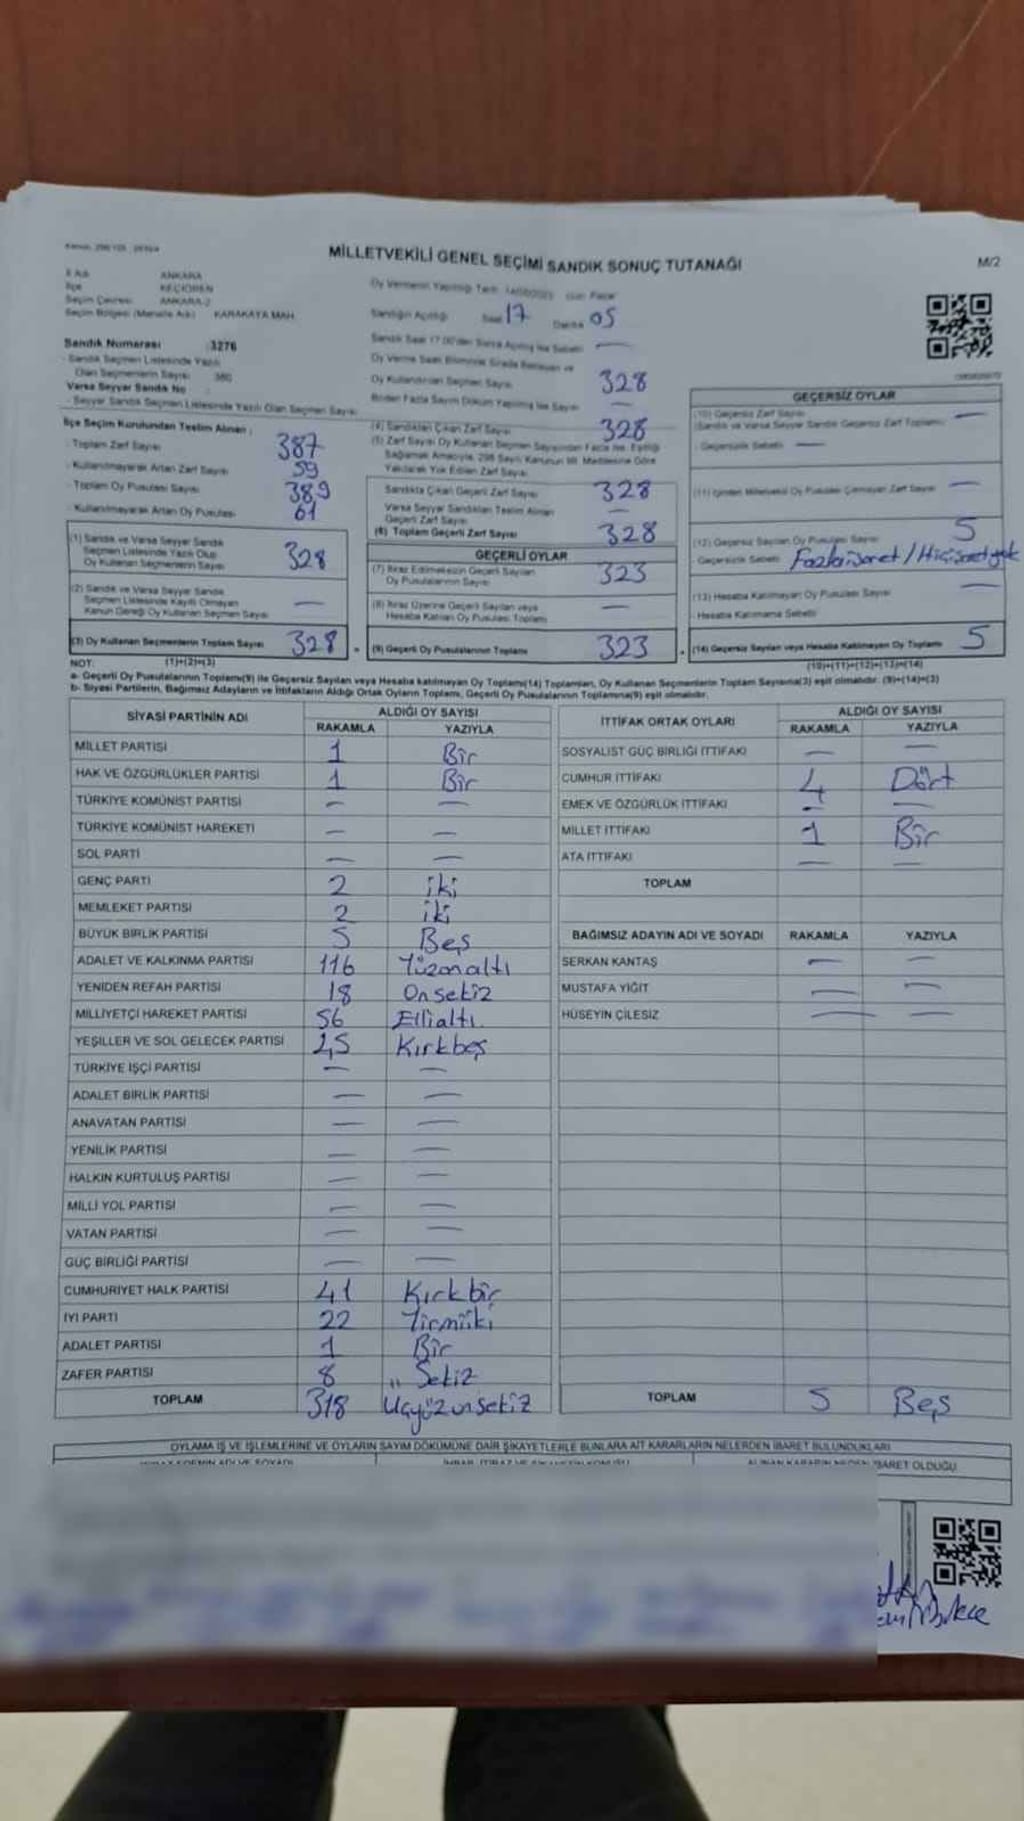 MİLLETVEKİLİ GENEL SEÇİMİ SANDIK SONUÇ TUTANAĞI
M/2
İl Adı ANKARA
İlçe KEÇİÖREN
Seçim Çevresi ANKARA-2
Seçim Bölgesi (Mahalle Adı) KARAKAYA MAH.
Oy Vermenin Yapıldığı Tarih
Sandığın Açıldığı Saat 17 Dakika 05
Sandık Numarası 3276
Sandık Seçmen Listesinde Yazılı
Olan Seçmenlerin Sayısı 380
Varsa Seyyar Sandık No
- Seyyar Sandık Seçmen Listesinde Yazılı Olan Seçmen Sayısı
Oy Kullandırılan Seçmen Sayısı 328
Birden Fazla Sayım Döküm Yapılmış İse Sayısı —
İlçe Seçim Kurulundan Teslim Alınan :
- Toplam Zarf Sayısı 387
- Kullanılmayarak Artan Zarf Sayısı 59
- Toplam Oy Pusulası Sayısı 389
- Kullanılmayarak Artan Oy Pusulası 61
(1) Sandık ve Varsa Seyyar Sandık
Seçmen Listesinde Yazılı Olup
Oy Kullanan Seçmenlerin Sayısı 328
(2) Sandık ve Varsa Seyyar Sandık
Seçmen Listesinde Kayıtlı Olmayan
Kanun Gereği Oy Kullanan Seçmen Sayısı —
(3) Oy Kullanan Seçmenlerin Toplam Sayısı 328
(1)+(2)=(3)
(4) Sandıktan Çıkan Zarf Sayısı 328
Sandıkta Çıkan Geçerli Zarf Sayısı 328
Varsa Seyyar Sandıktan Teslim Alınan
Geçerli Zarf Sayısı —
(6) Toplam Geçerli Zarf Sayısı 328
GEÇERLİ OYLAR
(7) İtiraz Edilmeksizin Geçerli Sayılan
Oy Pusulalarının Sayısı 323
(8) İtiraz Üzerine Geçerli Sayılan veya
Hesaba Katılan Oy Pusulası Toplamı —
(9) Geçerli Oy Pusulalarının Toplamı 323
GEÇERSİZ OYLAR
(10) Geçersiz Zarf Sayısı —
(Sandık ve Varsa Seyyar Sandık Geçersiz Zarf Toplamı)
- Geçersizlik Sebebi —
(12) Geçersiz Sayılan Oy Pusulası Sayısı 5
- Geçersizlik Sebebi Fazla işaret / Hiç işaret yok
(13) Hesaba Katılmayan Oy Pusulası Sayısı —
- Hesaba Katılmama Sebebi
(14) Geçersiz Sayılan veya Hesaba Katılmayan Oy Toplamı 5
(10)+(11)+(12)+(13)=(14)
NOT:
a- Geçerli Oy Pusulalarının Toplamı(9) ile Geçersiz Sayılan veya Hesaba katılmayan Oy Toplamı(14) Toplamları, Oy Kullanan Seçmenlerin Toplam Sayısına(3) eşit olmalıdır. (9)+(14)=(3)
b- Siyasi Partilerin, Bağımsız Adayların ve İttifakların Aldığı Ortak Oyların Toplamı, Geçerli Oy Pusulalarının Toplamına(9) eşit olmalıdır.
SİYASİ PARTİNİN ADI ALDIĞI OY SAYISI
RAKAMLA YAZIYLA
MİLLET PARTİSİ 1 Bir
HAK VE ÖZGÜRLÜKLER PARTİSİ 1 Bir
TÜRKİYE KOMÜNİST PARTİSİ — —
TÜRKİYE KOMÜNİST HAREKETİ — —
SOL PARTİ — —
GENÇ PARTİ 2 iki
MEMLEKET PARTİSİ 2 iki
BÜYÜK BİRLİK PARTİSİ 5 Beş
ADALET VE KALKINMA PARTİSİ 116 Yüzonaltı
YENİDEN REFAH PARTİSİ 18 Onsekiz
MİLLİYETÇİ HAREKET PARTİSİ 56 Ellialtı
YEŞİLLER VE SOL GELECEK PARTİSİ 45 Kırkbeş
TÜRKİYE İŞÇİ PARTİSİ — —
ADALET BİRLİK PARTİSİ — —
ANAVATAN PARTİSİ — —
YENİLİK PARTİSİ — —
HALKIN KURTULUŞ PARTİSİ — —
MİLLİ YOL PARTİSİ — —
VATAN PARTİSİ — —
GÜÇ BİRLİĞİ PARTİSİ — —
CUMHURİYET HALK PARTİSİ 41 Kırkbir
İYİ PARTİ 22 Yirmiiki
ADALET PARTİSİ 1 Bir
ZAFER PARTİSİ 8 Sekiz
TOPLAM 318 Üçyüzonsekiz
İTTİFAK ORTAK OYLARI ALDIĞI OY SAYISI
RAKAMLA YAZIYLA
SOSYALİST GÜÇ BİRLİĞİ İTTİFAKI — —
CUMHUR İTTİFAKI 4 Dört
EMEK VE ÖZGÜRLÜK İTTİFAKI — —
MİLLET İTTİFAKI 1 Bir
ATA İTTİFAKI — —
TOPLAM
BAĞIMSIZ ADAYIN ADI VE SOYADI RAKAMLA YAZIYLA
SERKAN KANTAŞ — —
MUSTAFA YİĞİT — —
HÜSEYİN ÇİLESİZ — —
TOPLAM 5 Beş
OYLAMA İŞ VE İŞLEMLERİNE VE OYLARIN SAYIM DÖKÜMÜNE DAİR ŞİKAYETLERLE BUNLARA AİT KARARLARIN NELERDEN İBARET BULUNDUKLARI